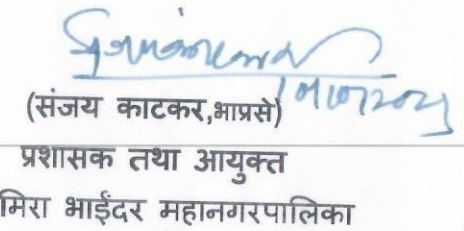 (संजय काटकर,भाप्रसे)
प्रशासक तथा आयुक्त
मिरा भाईंदर महानगरपालिका